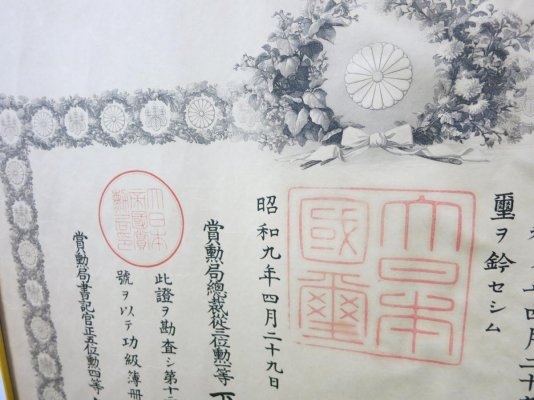 四月二十
璽ヲ鈐セシム
大日本
國璽
昭和九年四月二十九日
賞勳局總裁從三位勳一等
大日本
帝國賞
勳局印
此證ヲ勘査シ第十
號ヲ以テ功級簿册
賞勳局書記官正五位勳四等